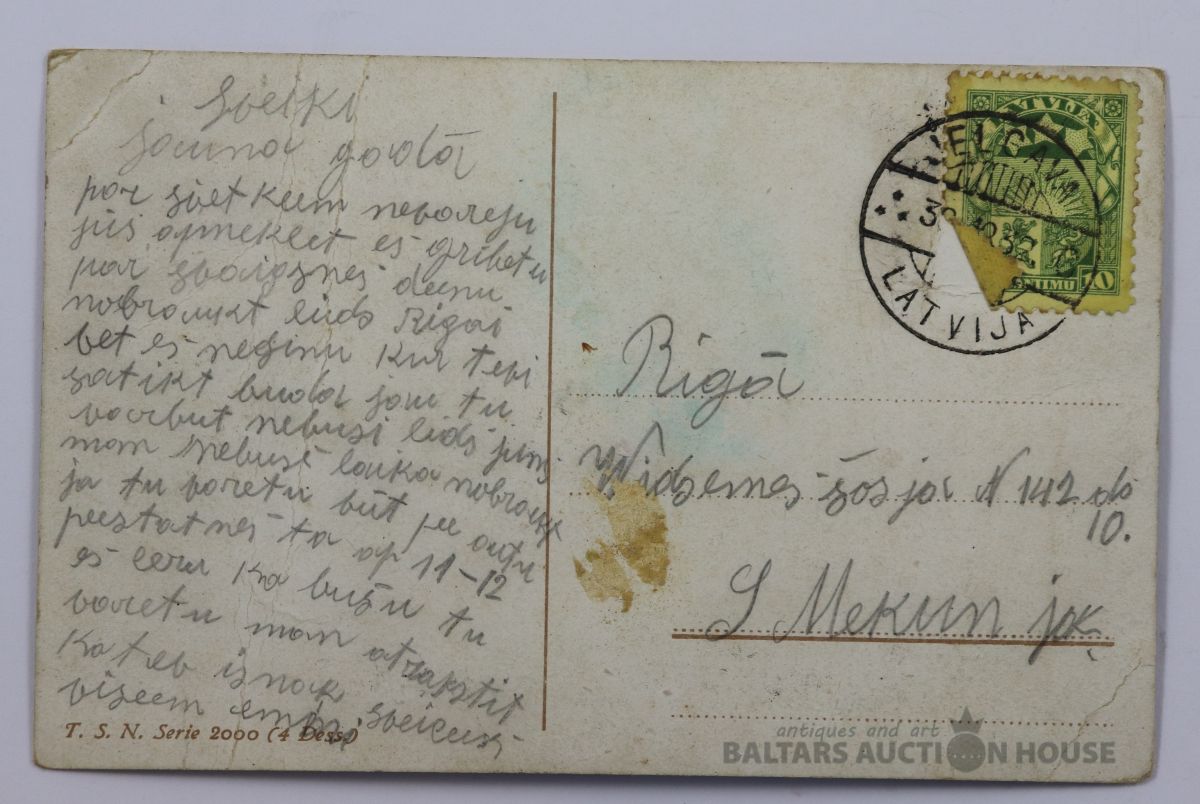 Sveiki
jauna gadā
par svetkeem nevareju
jus apmeklet es gribetu
par zvaigznes deenu
nobraukt lids Rigai
bet es nezinu kur tevi
satikt buda jau tu
varbut nebusi lids jums
man nebus laika nobraukt
ja tu varetu būt pe autu
peestatnes ta ap 11-12
es ceru ka bušu tu
varetu man atrakstit
Ka treb iznak
viseem sveicusi
T. S. N. Serie 2000 (4 Dess.)
LATVIJA
JELGAVA
32
LATVIJA
Rigā
Widzemes šosja N 142 ds
10.
S Mekun jk.
antiques and art
BALTARS AUCTION HOUSE